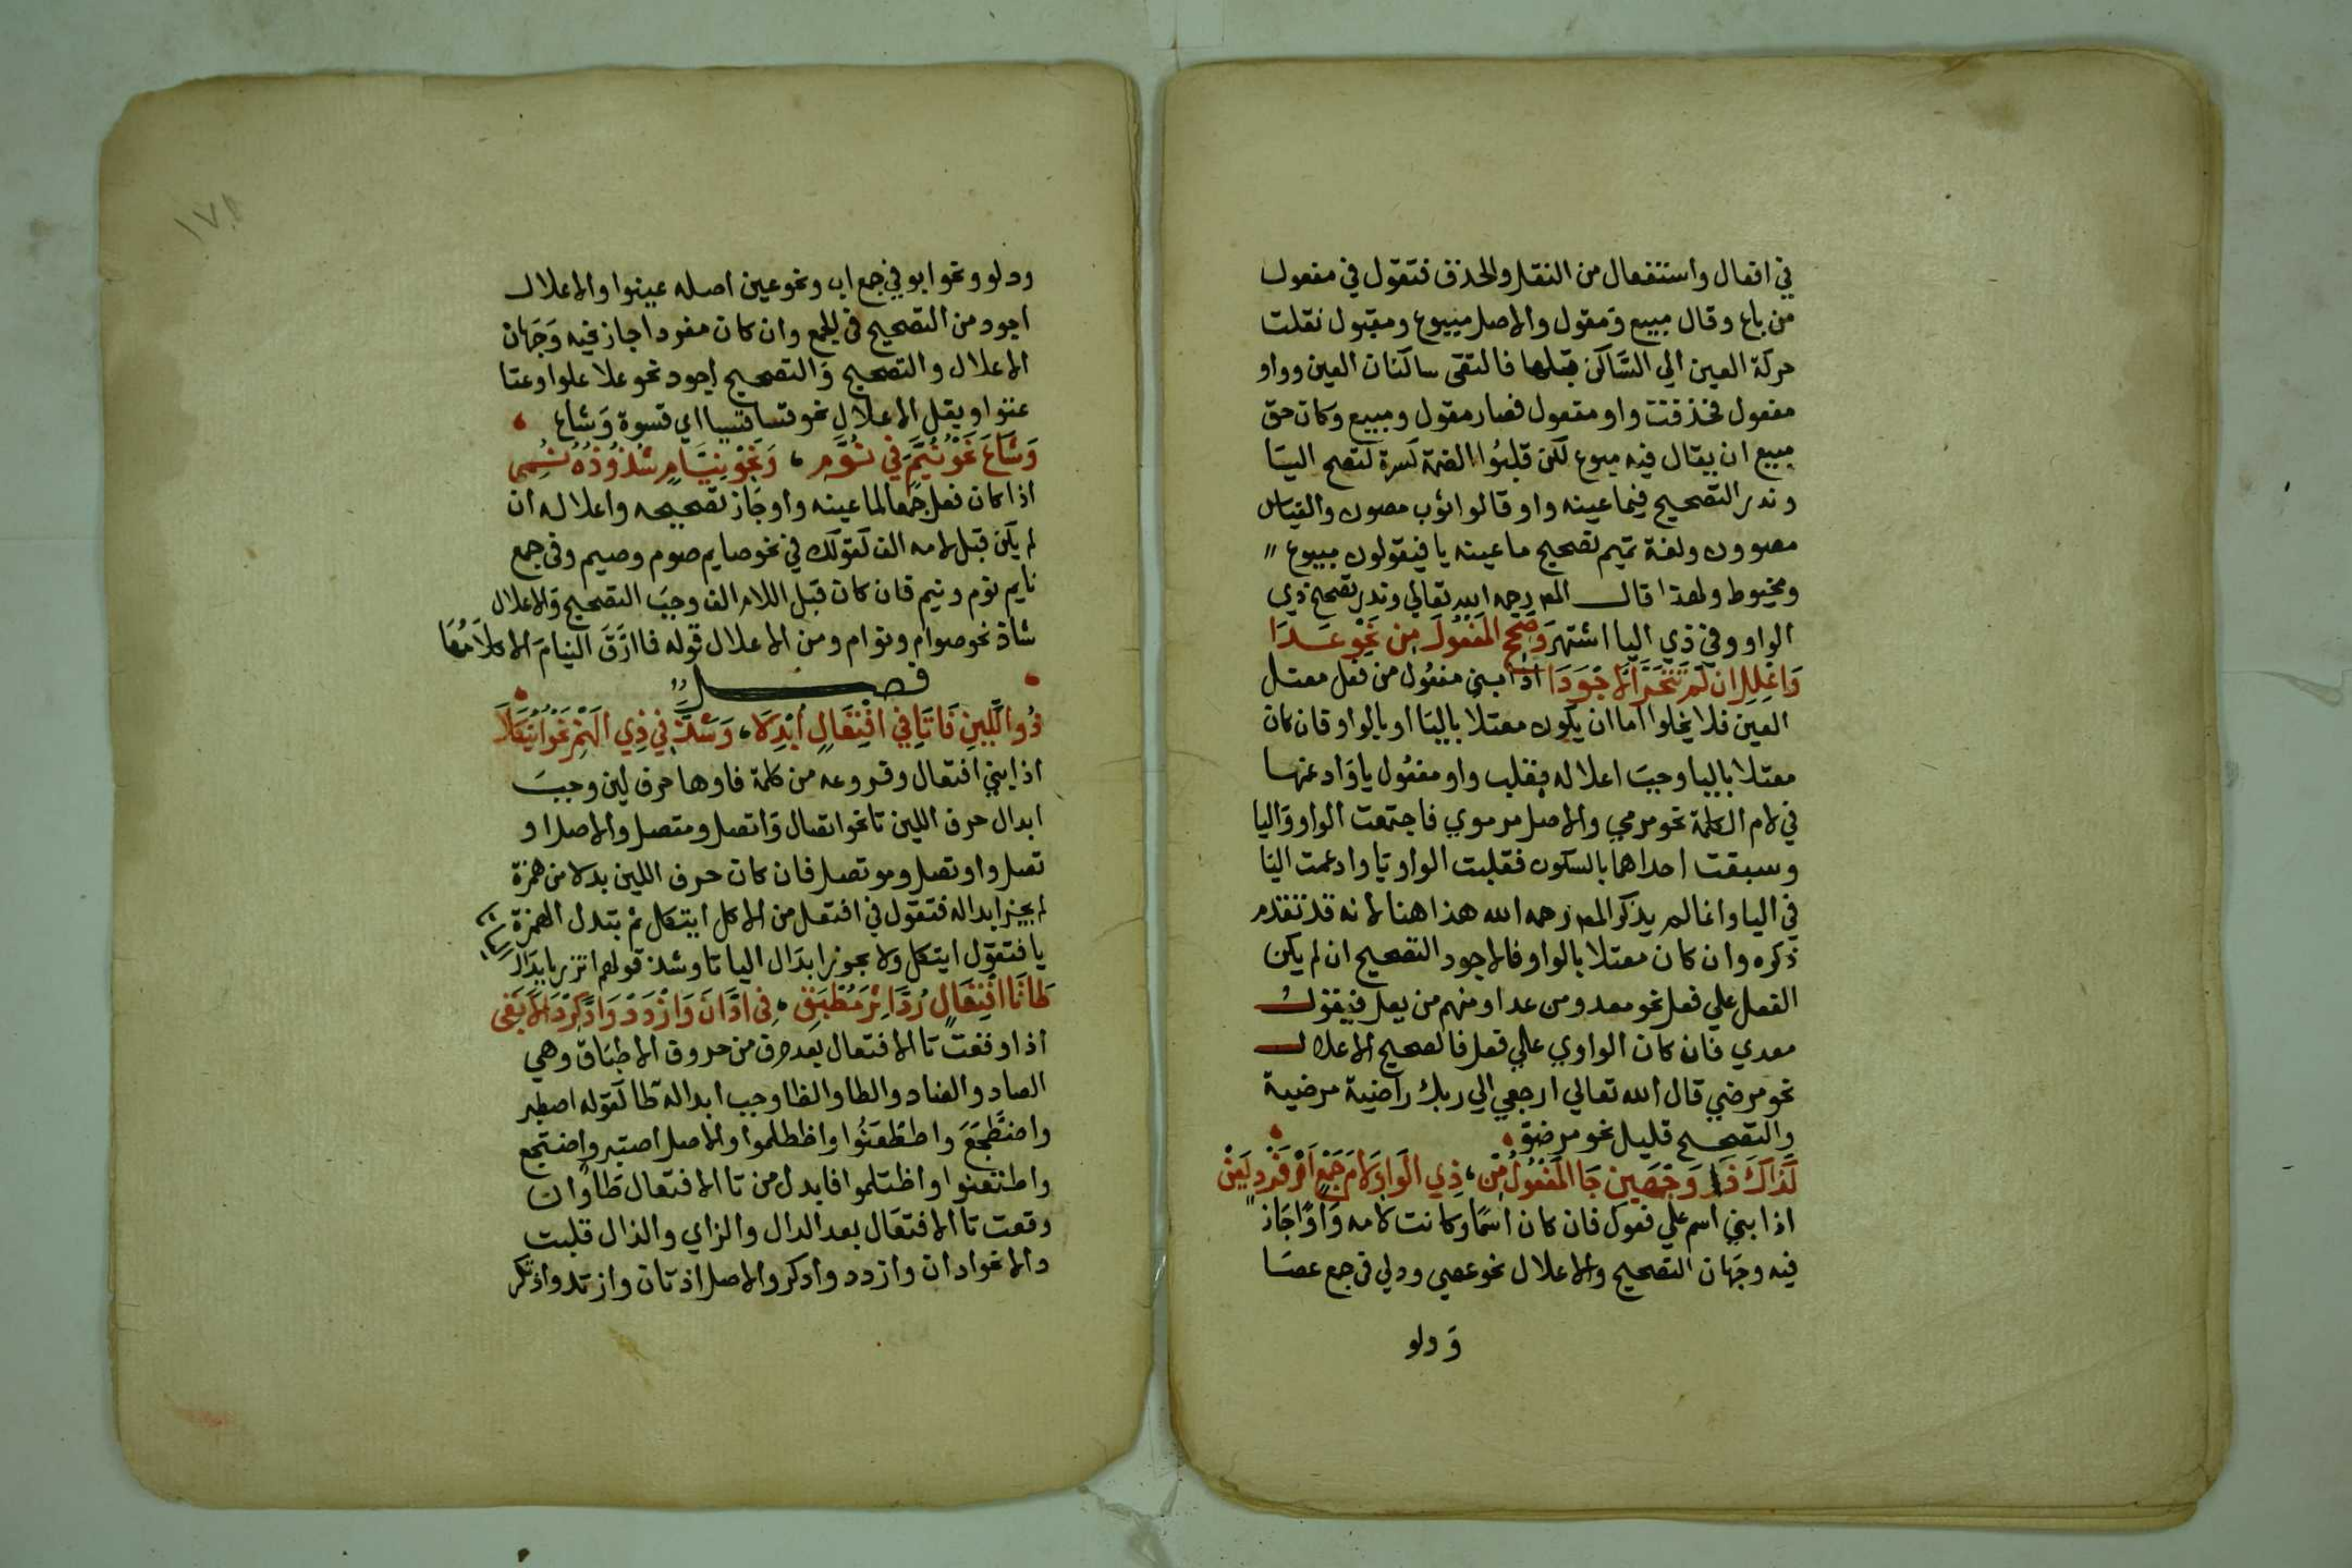 في افعال واستفعال من النقل والحذف فتقول في مفعول
من باع وقال مبيع ومقول والاصل مبيوع ومقوول نقلت
حركة العين الي السَّاكن قبلها فالتقي ساكنان العين وواو
مفعول فحذفت واو مفعول فصار مقول ومبيع وكان حق
مبيع ان يقال فيه مبوع لكن قلبُوا الضمة كسرة لتصح اليَا
وندر التصحيح فيما عينه واو قالوا ثوب مصوون والقياس
مصوون ولغة تميم تصحيح ما عينه يا فيقولون مبيوع
ومخيوط ولهذا قال المص رحمه الله تعالي وندر تصحيح ذي
الواو وفي ذي اليا اشتهر وَصَحِّحِ المَفْعُولَ مِن نَحْوِ عَدَا
وَاعْلِلِ ان لَمْ تَتَحَرَّ الاَجْوَدَا اذا بني مفعُول من فعل معتل
العين فلا يخلوا اما ان يكون معتلا باليَا او بالواو فان كان
معتلا باليا وجبَ اعلاله بقلب واو مفعُول يا وَادغمها
في لام الكلمة نحو مرمي والاصل مرموي فاجتمعت الواو وَاليا
وسبقت احداهما بالسكون فقلبت الواو يا وادغمت اليا
في اليا وانما لم يذكر المص رحمه الله هذا هنا لانه قد تقدم
ذكره وان كان معتلا بالواو فالاجود التصحيح ان لم يكن
الفعل علي فعل نحو معدو من عدا ومنهم من يعل فيقول
معدي فان كان الواوي علي فعل فالصحيح الاعلال
نحو مرضي قال الله تعالي ارجعي الي ربك راضية مرضية
والتصحيح قليل نحو مرضو
كَذَاكَ ذَا وَجْهَينِ جَا الفُعُولُ مِنْ، ذِي الوَاوِ لاَمَ جَمْعٍ اَوْ فَرْدٍ يَعِنْ
اذا بني اسم علي فعول فان كان اسمًا وكانت لامه وَاوًا جَاز
فيه وجهَان التصحيح والاعلال نحو عصي ودلي في جمع عصَا
وَ دلو
١٧٨
ودلو ونحو ابو في جمع اب ونحو عين اصله عينوا والاعلال
اجود من التصحيح في الجمع وان كان مفردا جاز فيه وَجهَان
الاعلال والتصحيح وَالتصحيح اجود نحو علا علوا وعتا
عتوا ويقل الاعلال نحو قسا قسيا اي قسوة وَشاع
وَشَاعَ نَحْوُ نُيَّمٍ في نُوَّمِ، وَنَحْوُ نِيَّامٍ شُذُوذُهُ نُمِي
اذا كان فعل جمعا لما عينه واو جَاز تصحيحه واعلاله ان
لم يكن قبل لامه الف كقولك في نحو صايم صوم وصيم وفي جمع
نايم نوم ونيم فان كان قبل اللام الف وجبَ التصحيح وَالاعلال
شاذ نحو صوام ونوام ومن الاعلال قوله فما ارَّقَ النيامَ الا كلاَمُهَا
فصل
ذُو اللِّينِ فَا تَا في افْتِعَالٍ اُبْدِلاَ، وَشَذَّ في ذِي الهَمْزِ نَحْوُ ائْتَكَلاَ
اذا بني افتعال وفروعه من كلمة فاوها حرف لين وجبَ
ابدال حرف اللين تا نحو اتصال وَاتصل ومتصل والاصل او
تصل واوتصل وموتصل فان كان حرف اللين بدلا من همزة
لم يجز ابداله فتقول في افتعل من الاكل ايتكل ثم تبدل الهمزة
يا فتقول ايتكل ولا يجوز ابدَال اليا تا وشذ قولهم اتزر بابدَال
طَا تَا افْتِعَالٍ رُدَّ اِثْرَ مُطْبَقِ، في ادَّانَ وَازْدَدْ وَادَّكِرْ دَالاً بَقِي
اذا وقعت تا الافتعال بعد حرف من حروف الاطباق وهي
الصاد والضاد والطا والظا وجب ابداله طا كقوله اصطبر
واضطَجَعَ واطْطعَنُوا واظطلموا والاصل اصتبر واضتجع
واطتعنوا واظتلموا فابدل من تا الافتعال طَا وان
وقعت تا الافتعَال بعد الدال والزاي والذال قلبت
دالا نحو ادان وازدد وادكر والاصل ادتان وازتد واذتكر